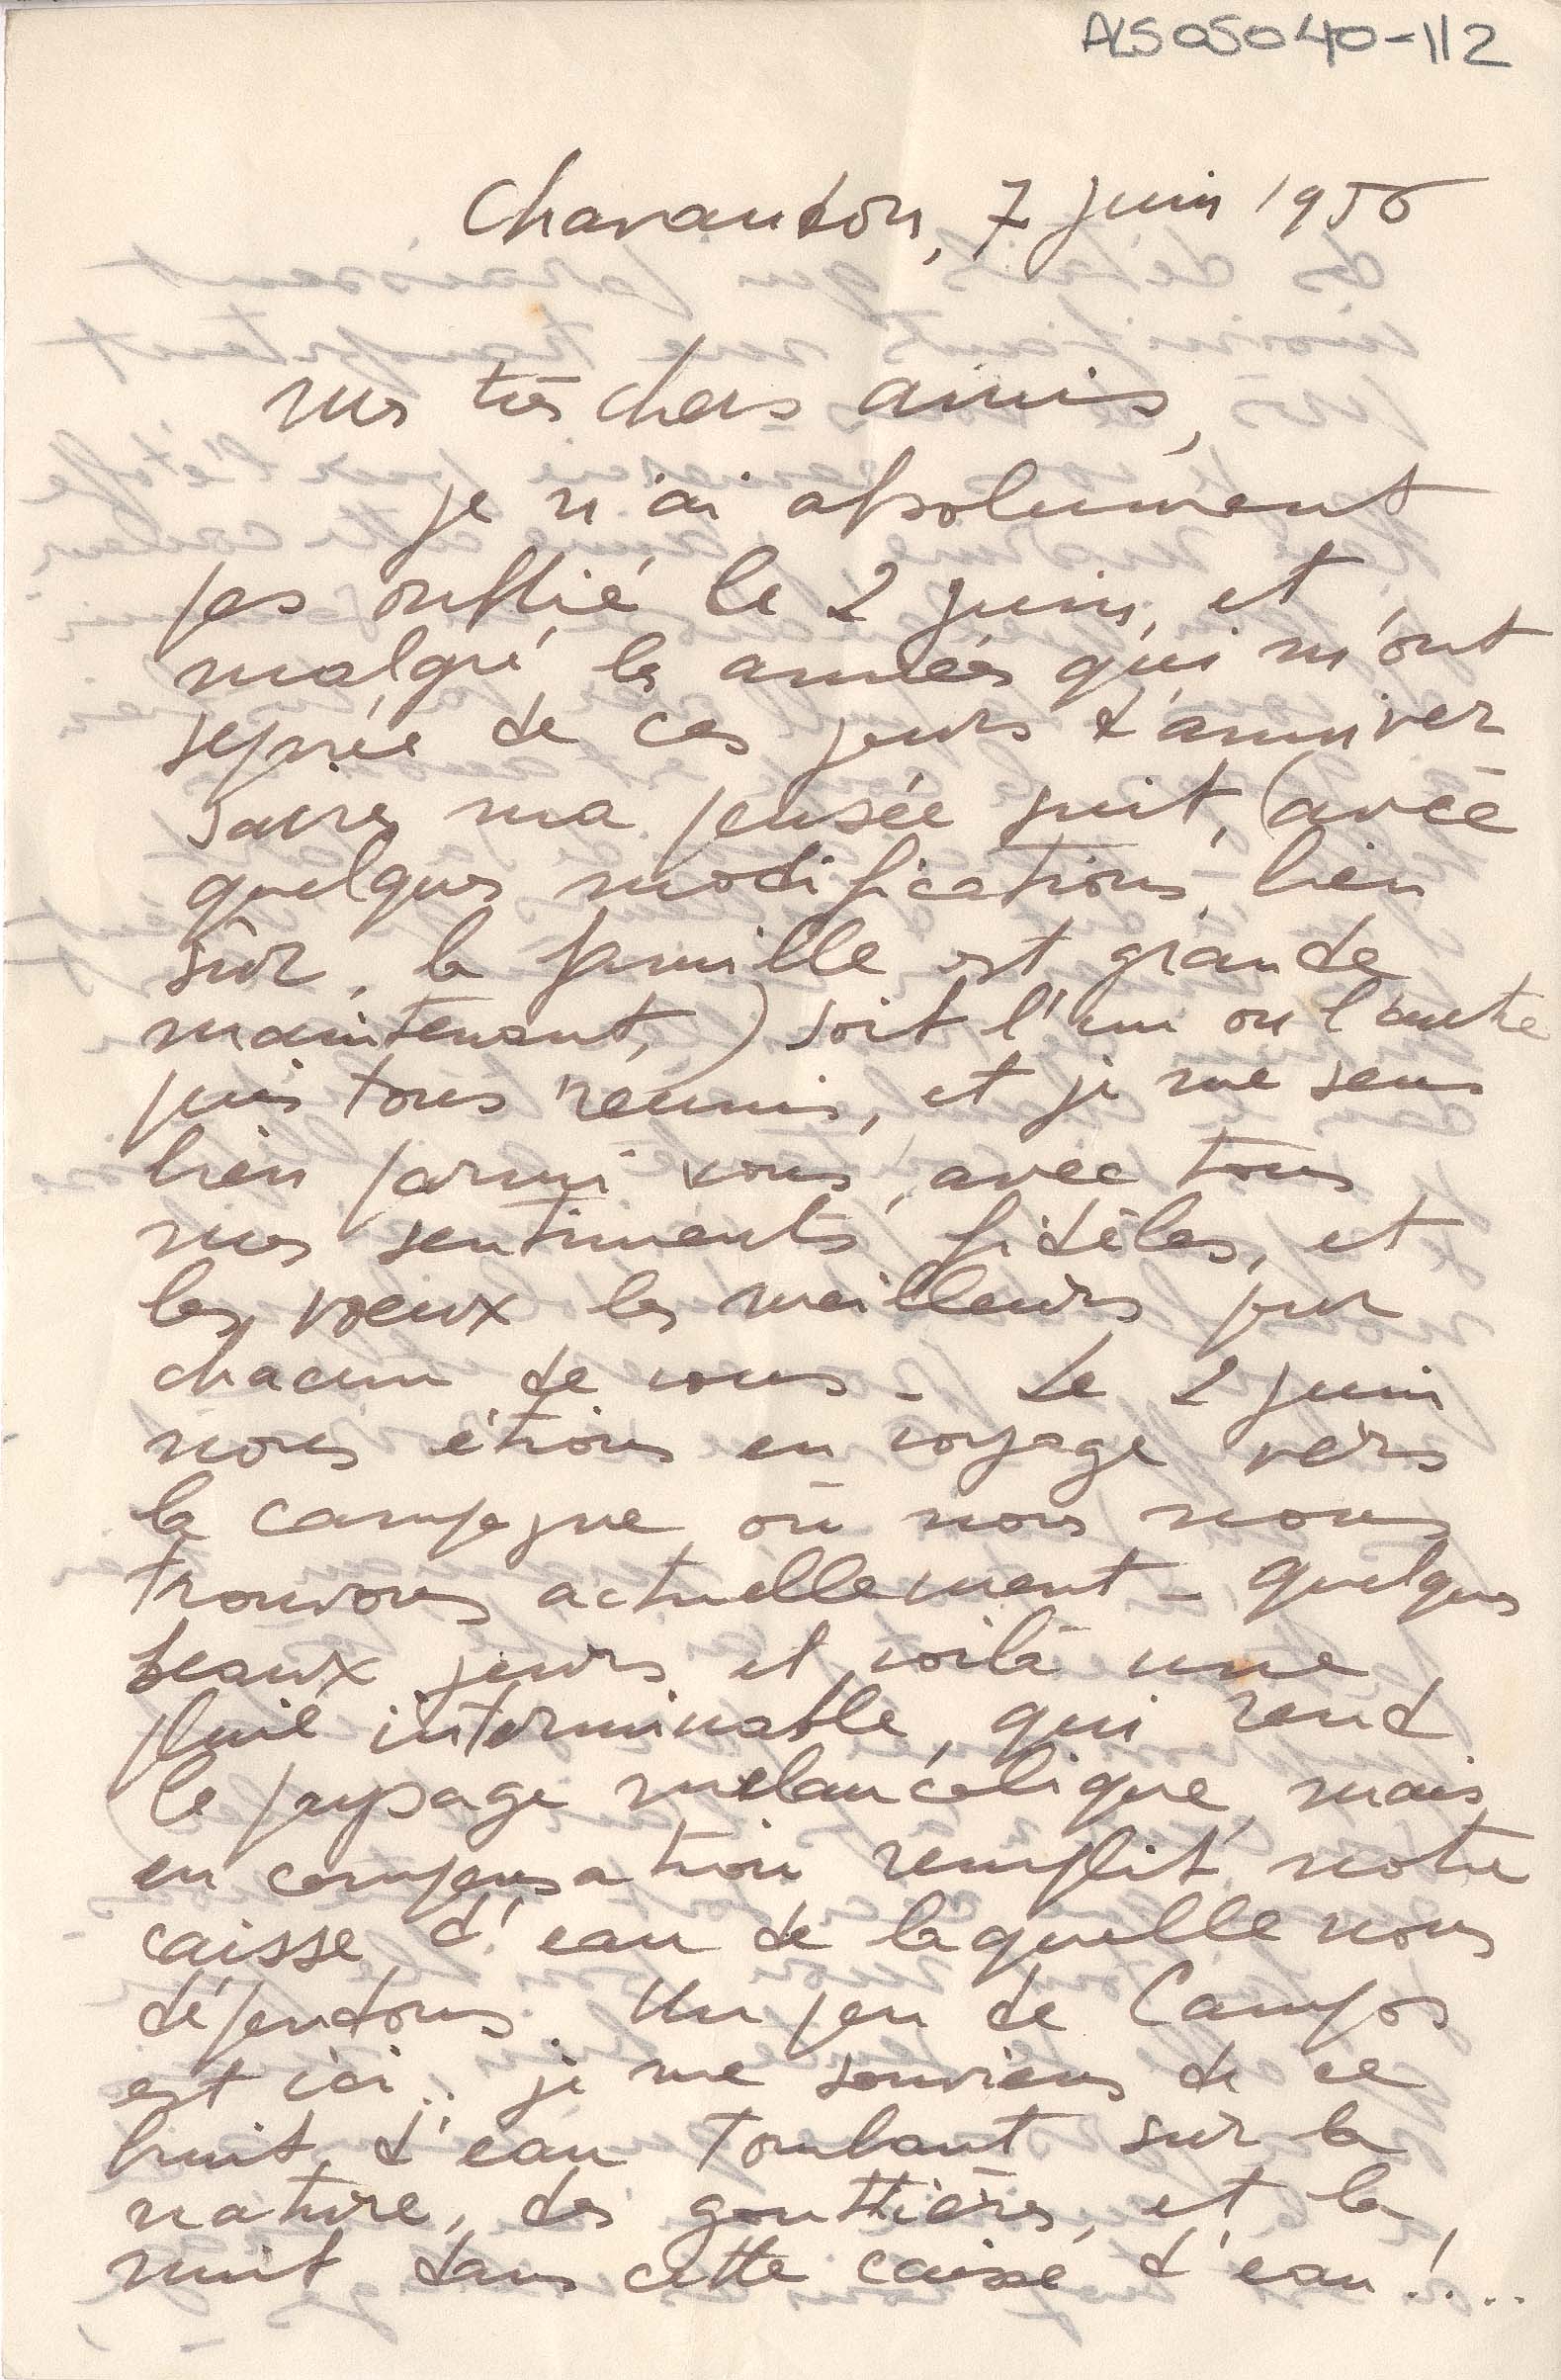 ALS05040-112
Chavaudon, 7 juin 1956
mes très chers amis,
je n'ai absolument
pas oublié le 2 juin, et
malgré les années qui m'ont
séparée de ces jours d'anniver
saire, ma pensée suit, (avec
quelques modifications, bien
sûr, la famille est grande
maintenant,) soit l'un ou l'autre
puis tous réunis, et je me sens
bien parmi vous, avec tous
mes sentiments fidèles, et
les voeux les meilleurs pour
chacun de vous - Le 2 juin
nous étions en voyage vers
la campagne où nous nous
trouvons actuellement - quelques
beaux jours et voilà une
pluie interminable, qui rend
le paysage mélancolique, mais
en compensation remplit notre
caisse d'eau de laquelle nous
dépendons. Un peu de Campos
est ici.. je me souviens de ce
bruit d'eau tombant sur la
nature, des gouttières, et la
nuit dans cette caisse d'eau!...